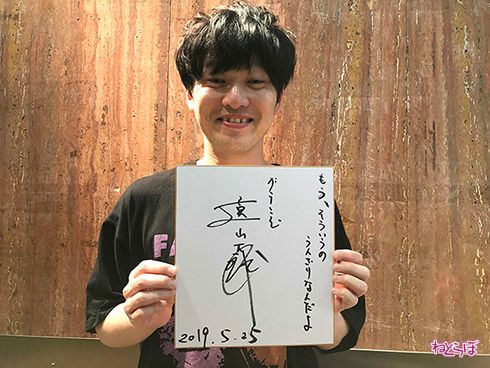 もう、そういうの
うんざりなんだよ
真山
2019.5.25
FA
ねとらぼ